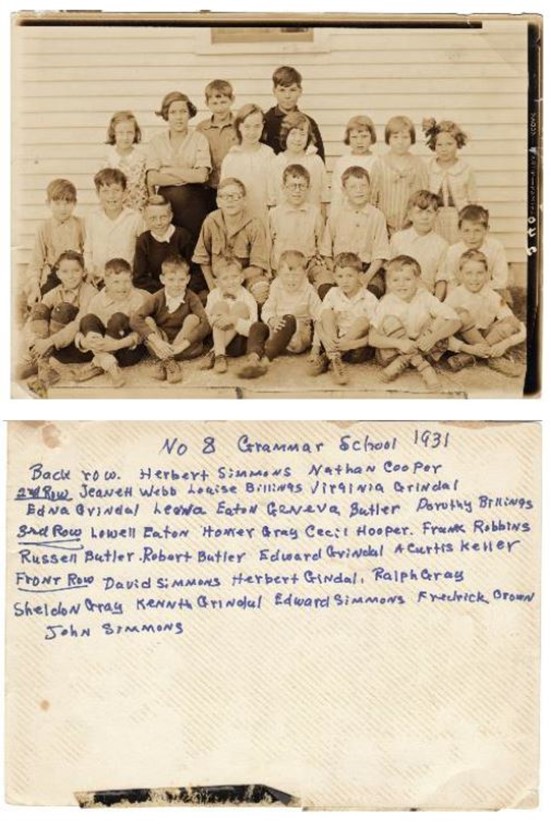 No 8 Grammar School 1931
Back row. Herbert Simmons Nathan Cooper
2nd Row Jeanett Webb Louise Billings Virginia Grindal
Edna Grindal Leona Eaton Geneva Butler Dorothy Billings
3rd Row Lowell Eaton Homer Gray Cecil Hooper. Frank Robbins
Russell Butler. Robert Butler Edward Grindal A Curtis Keller
Front Row David Simmons Herbert Gindal, Ralph Gray
Sheldon Gray Kennth Grindul Edward Simmons Fredrick
John Simmons